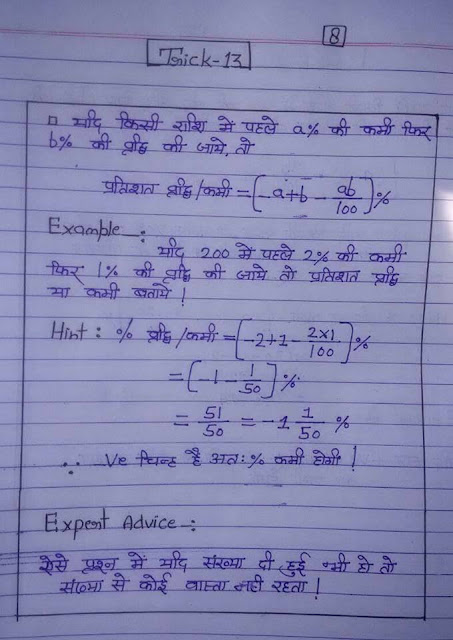 8
Trick-13
□ यदि किसी राशि में पहले a% की कमी फिर
b% की वृद्धि की जाये, तो
प्रतिशत वृद्धि/कमी = [-a+b - ab/100]%
Example -:
यदि 200 में पहले 2% की कमी
फिर 1% की वृद्धि की जाये तो प्रतिशत वृद्धि
या कमी बताये !
Hint : % वृद्धि/कमी = [-2+1 - 2×1/100]%
= [-1 - 1/50]%
= 51/50 = -1 1/50 %
∴ -Ve चिन्ह है अतः % कमी होगी !
Expert Advice -:
ऐसे प्रश्न में यदि संख्या दी हुई भी हो तो
संख्या से कोई वास्ता नही रहता !